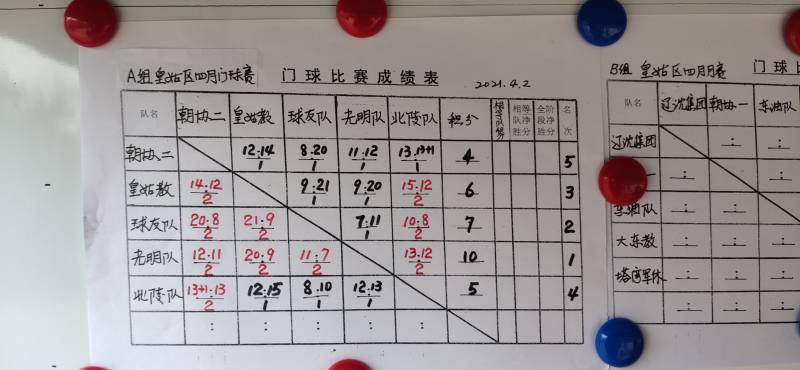 A组 皇姑区四月门球赛 门球比赛成绩表 2021.4.2
队名 朝协二 皇姑教 球友队 光明队 北陵队 积分 相等队净胜分 全阶段净胜分 名次
朝协二 12:14 1 8:20 1 11:12 1 13:13+1 1 4 5
皇姑教 14:12 2 9:21 1 9:20 1 15:12 2 6 3
球友队 20:8 2 21:9 2 7:11 1 10:8 2 7 2
光明队 12:11 2 20:9 2 11:7 2 13:12 2 10 1
北陵队 13+1:13 2 12:15 1 8:10 1 12:13 1 5 4
: : : : :
B组 皇姑区四月赛 门球
队名 辽沈集团 朝协一 东油队
辽沈集团 : :
一 : :
东油队 : :
大东教 : : :
塔湾军休 : : :
: : :